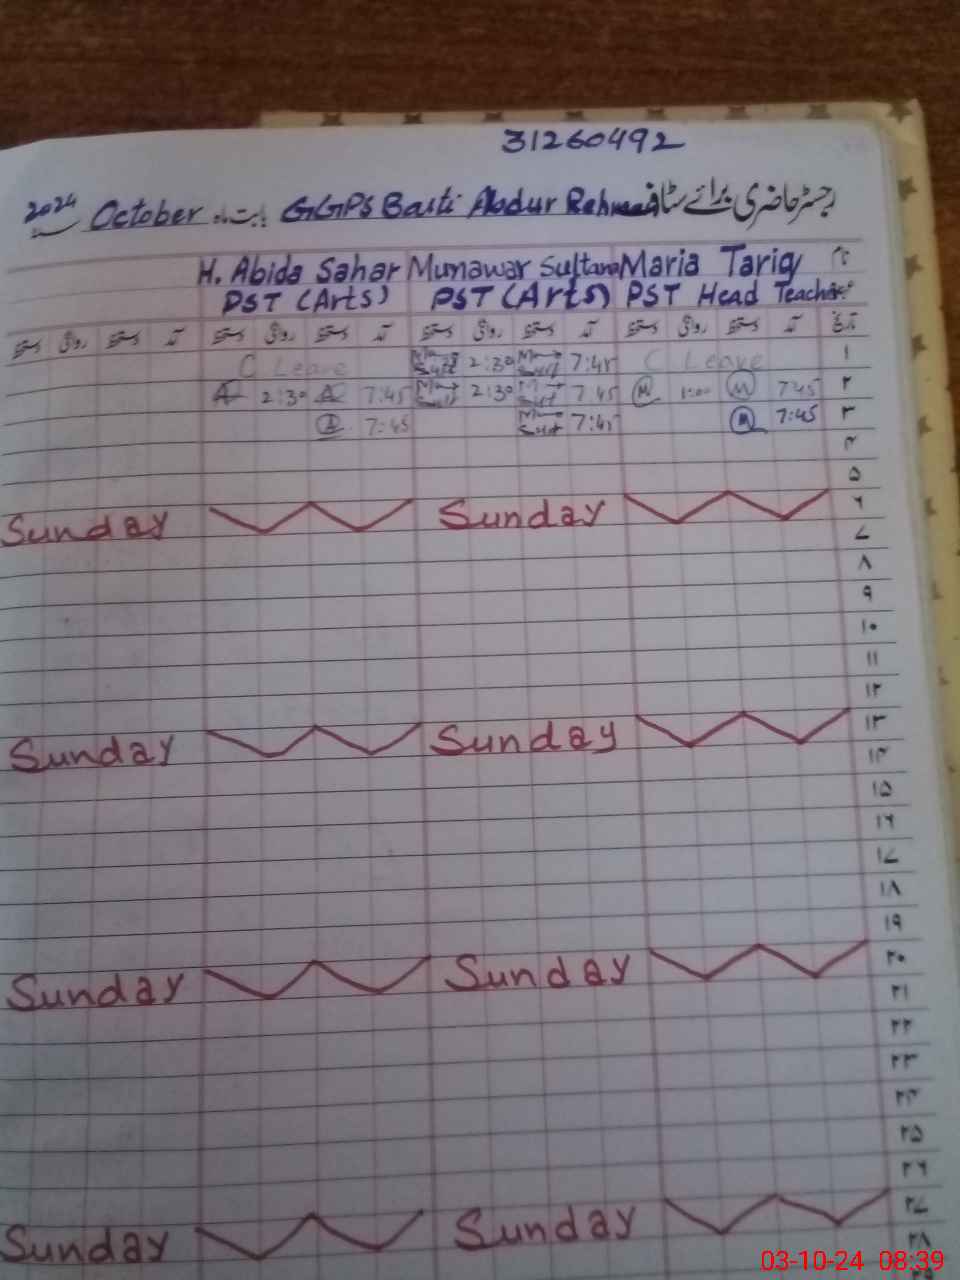 31260492
رجسٹر حاضری برائے سٹاف GGPS Basti Abdur Rehman بابت ماہ October 2024
نام Maria Tariq Munawar Sultana H. Abida Sahar
PST Head Teacher PST (Arts) PST (Arts)
تاریخ آمد دستخط روانگی دستخط آمد دستخط روانگی دستخط آمد دستخط روانگی دستخط آمد دستخط روانگی دستخط
۱ C Leave 7:45 2:30 C Leave
۲ 7:45 M 1:00 M 7:45 2:30 7:45 A 2:30 A
۳ 7:45 M 7:45 7:45 A
۴
۵
۶ Sunday Sunday
۷
۸
۹
۱۰
۱۱
۱۲
۱۳ Sunday Sunday
۱۴
۱۵
۱۶
۱۷
۱۸
۱۹
۲۰ Sunday Sunday
۲۱
۲۲
۲۳
۲۴
۲۵
۲۶
۲۷ Sunday Sunday
۲۸
03-10-24 08:39